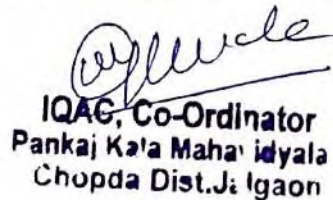 IQAC, Co-Ordinator
Pankaj Kala Mahavidyala
Chopda Dist.Jalgaon